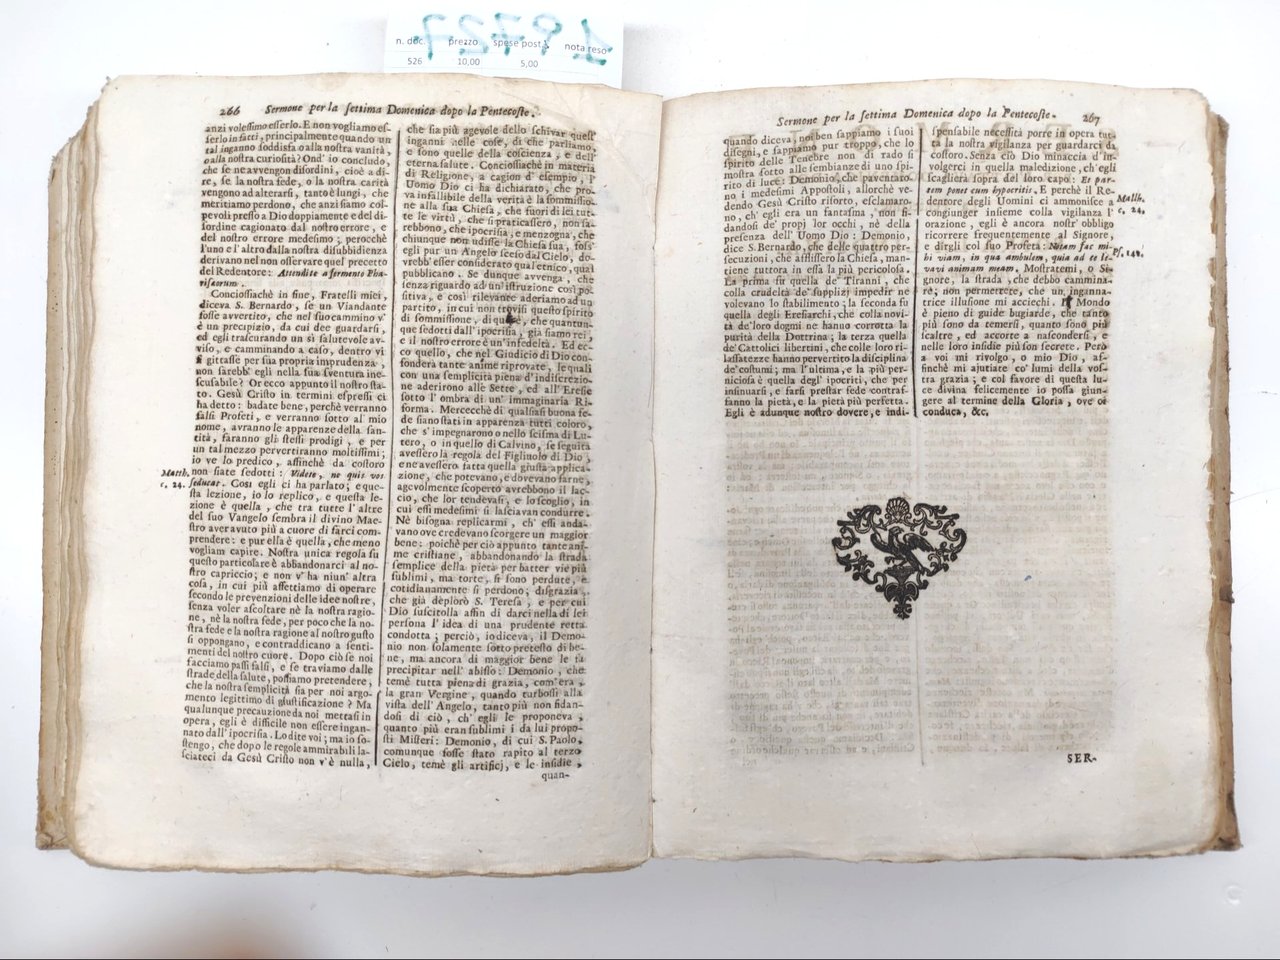 n. doc. prezzo spese post. nota reso
526 10,00 5,00
266 Sermone per la settima Domenica dopo la Pentecoste.
anzi volessimo esserlo. E non vogliamo es-
serlo in fatti, principalmente quando un
tal inganno soddisfa o alla nostra vanità,
o alla nostra curiosità? Ond' io concludo,
che se ne avvengon disordini, cioè a di-
re, se la nostra fede, o la nostra carità
vengono ad alterarsi, tanto è lungi, che
meritiamo perdono, che anzi siamo col-
pevoli presso a Dio doppiamente e del di-
sordine cagionato dal nostro errore, e
del nostro errore medesimo; perocchè
l'uno e l'altro dalla nostra disubbidienza
derivano nel non osservare quel precetto
del Redentore: Attendite a fermento Pha-
risæorum.
Conciossiachè in fine, Fratelli miei,
diceva S. Bernardo, se un Viandante
fosse avvertito, che nel suo cammino v'
è un precipizio, da cui dee guardarsi,
ed egli trascurando un sì salutevole av-
viso, e camminando a caso, dentro vi
si gittasse per sua propria imprudenza,
non sarebb' egli nella sua sventura ine-
scusabile? Or ecco appunto il nostro sta-
to. Gesù Cristo in termini espressi ci
ha detto: badate bene, perchè verranno
falsi Profeti, e verranno sotto al mio
nome, avranno le apparenze della san-
tità, faranno gli stessi prodigi, e per
un tal mezzo pervertiranno moltissimi;
io ve lo predico, affinchè da costoro
non siate sedotti: Videte, ne quis vos
Matth.
c. 24.
seducat. Così egli ci ha parlato; e que-
sta lezione, io lo replico, e questa le-
zione è quella, che tra tutte l' altre
del suo Vangelo sembra il divino Mae-
stro aver avuto più a cuore di farci com-
prendere: e pur ella è quella, che meno
vogliam capire. Nostra unica regola su
questo particolare è abbandonarci al no-
stro capriccio; e non v' ha niun' altra
cosa, in cui più affettiamo di operare
secondo le prevenzioni delle idee nostre,
senza voler ascoltare nè la nostra ragio-
ne, nè la nostra fede, per poco che la no-
stra fede e la nostra ragione al nostro gusto
si oppongano, e contraddicano a senti-
menti del nostro cuore. Dopo ciò se noi
facciamo passi falsi, e se traviamo dalle
strade della salute, possiamo pretendere,
che la nostra semplicità sia per noi argo-
mento legittimo di giustificazione? Ma
qualunque precauzione da noi mettasi in
opera, egli è difficile non essere ingan-
nato dall' ipocrisia. Lo dite voi; ma io so-
stengo, che dopo le regole ammirabili la-
sciateci da Gesù Cristo non v'è nulla,
che sia più agevole dello schivar quest'
inganni nelle cose, di che parliamo,
e sono quelle della coscienza, e dell'
eterna salute. Conciossiachè in materia
di Religione, a cagion d' esempio, l'
Uomo Dio ci ha dichiarato, che pro-
va infallibile della verità è la sommissio-
ne alla sua Chiesa, che fuori di lei tut-
te le virtù, che si praticassero, non sa-
rebbono, che ipocrisia, e menzogna, che
chiunque non udisse la Chiesa sua, foss'
egli pur un Angelo sceso dal Cielo, do-
vrebb' esser considerato qual etnico, qual
pubblicano. Se dunque avvenga, che
senza riguardo ad un' istruzione così po-
sitiva, e così rilevante aderiamo ad un
partito, in cui non trovisi questo spirito
di sommissione, di qui è, che quantun-
que sedotti dall' ipocrisia, già siamo rei,
e il nostro errore è un' infedeltà. Ed ec-
co quello, che nel Giudicio di Dio con-
fonderà tante anime riprovate, le quali
con una semplicità piena d' indiscrezio-
ne aderirono alle Sette, ed all' Eresie
sotto l' ombra di un' immaginaria Ri-
forma. Mercecchè di qualsiasi buona fe-
de siano stati in apparenza tutti coloro,
che s' impegnarono o nello scisma di Lu-
tero, o in quello di Calvino, se seguita
avessero la regola del Figliuolo di Dio,
e ne avessero fatta quella giusta applica-
zione, che potevano, e dovevano farne,
agevolmente scoperto avrebbono il lac-
cio, che lor tendevasi, e lo scoglio, in
cui essi medesimi si lasciavan condurre.
Nè bisogna replicarmi, ch' essi anda-
vano ove credevano scorgere un maggior
bene: poichè per ciò appunto tante ani-
me cristiane, abbandonando la strada
semplice della pietà per batter vie più
sublimi, ma torte, si sono perdute, e
cotidianamente si perdono; disgrazia,
che già deplorò S. Teresa, e per cui
Dio suscitolla affin di darci nella di lei
persona l' idea di una prudente retta
condotta; perciò, io diceva, il Demo-
nio non solamente sotto pretesto di be-
ne, ma ancora di maggior bene le fa
precipitar nell' abisso: Demonio, che
temè tutta piena di grazia, com' era,
la gran Vergine, quando turbossi alla
vista dell' Angelo, tanto più non fidan-
dosi di ciò, ch' egli le proponeva,
quanto più eran sublimi i da lui propo-
sti Misteri: Demonio, di cui S. Paolo,
comunque fosse stato rapito al terzo
Cielo, temè gli artificj, e le insidie,
quan-
Sermone per la settima Domenica dopo la Pentecoste. 267
quando diceva, noi ben sappiamo i suoi
disegni, e sappiamo pur troppo, che lo
spirito delle Tenebre non di rado si
mostra sotto alle sembianze di uno spi-
rito di luce: Demonio, che paventaro-
no i medesimi Appostoli, allorchè ve-
dendo Gesù Cristo risorto, esclamaro-
no, ch' egli era un fantasma, non fi-
dandosi de' propj lor occhi, nè della
presenza dell' Uomo Dio: Demonio,
dice S. Bernardo, che delle quattro per-
secuzioni, che afflissero la Chiesa, man-
tiene tuttora in essa la più pericolosa.
La prima fu quella de' Tiranni, che
colla crudeltà de' supplizj impedir ne
volevano lo stabilimento; la seconda fu
quella degli Eresiarchi, che colla novi-
tà de' lor dogmi ne hanno corrotta la
purità della Dottrina; la terza quella
de' Cattolici libertini, che colle loro ri-
lassatezze hanno pervertito la disciplina
de' costumi; ma l'ultima, e la più per-
niciosa è quella degl' ipocriti, che per
insinuarsi, e farsi prestar fede contraf-
fanno la pietà, e la pietà più perfetta.
Egli è adunque nostro dovere, e indi-
spensabile necessità porre in opera tut-
ta la nostra vigilanza per guardarci da
costoro. Senza ciò Dio minaccia d' in-
volgerci in quella maledizione, ch' egli
scaglierà sopra del loro capo: Et par-
tem ponet cum hypocritis. E perchè il Re-
Matth.
c. 24.
dentore degli Uomini ci ammonisce a
congiunger insieme colla vigilanza l'
orazione, egli è ancora nostr' obbligo
ricorrere frequentemente al Signore,
e dirgli col suo Profeta: Notam fac mi-
Ps. 142.
hi viam, in qua ambulem, quia ad te le-
vavi animam meam. Mostratemi, o Si-
gnore, la strada, che debbo cammina-
re; non permettere, che un' inganna-
trice illusione mi acciechi. Il Mondo
è pieno di guide bugiarde, che tanto
più sono da temersi, quanto sono più
scaltre, ed accorte a nascondersi, e
nelle loro insidie più son secrete. Però
a voi mi rivolgo, o mio Dio, af-
finchè mi ajutiate co' lumi della vo-
stra grazia; e col favore di questa lu-
ce divina felicemente io possa giun-
gere al termine della Gloria, ove ci
conduca, &c.
SER-